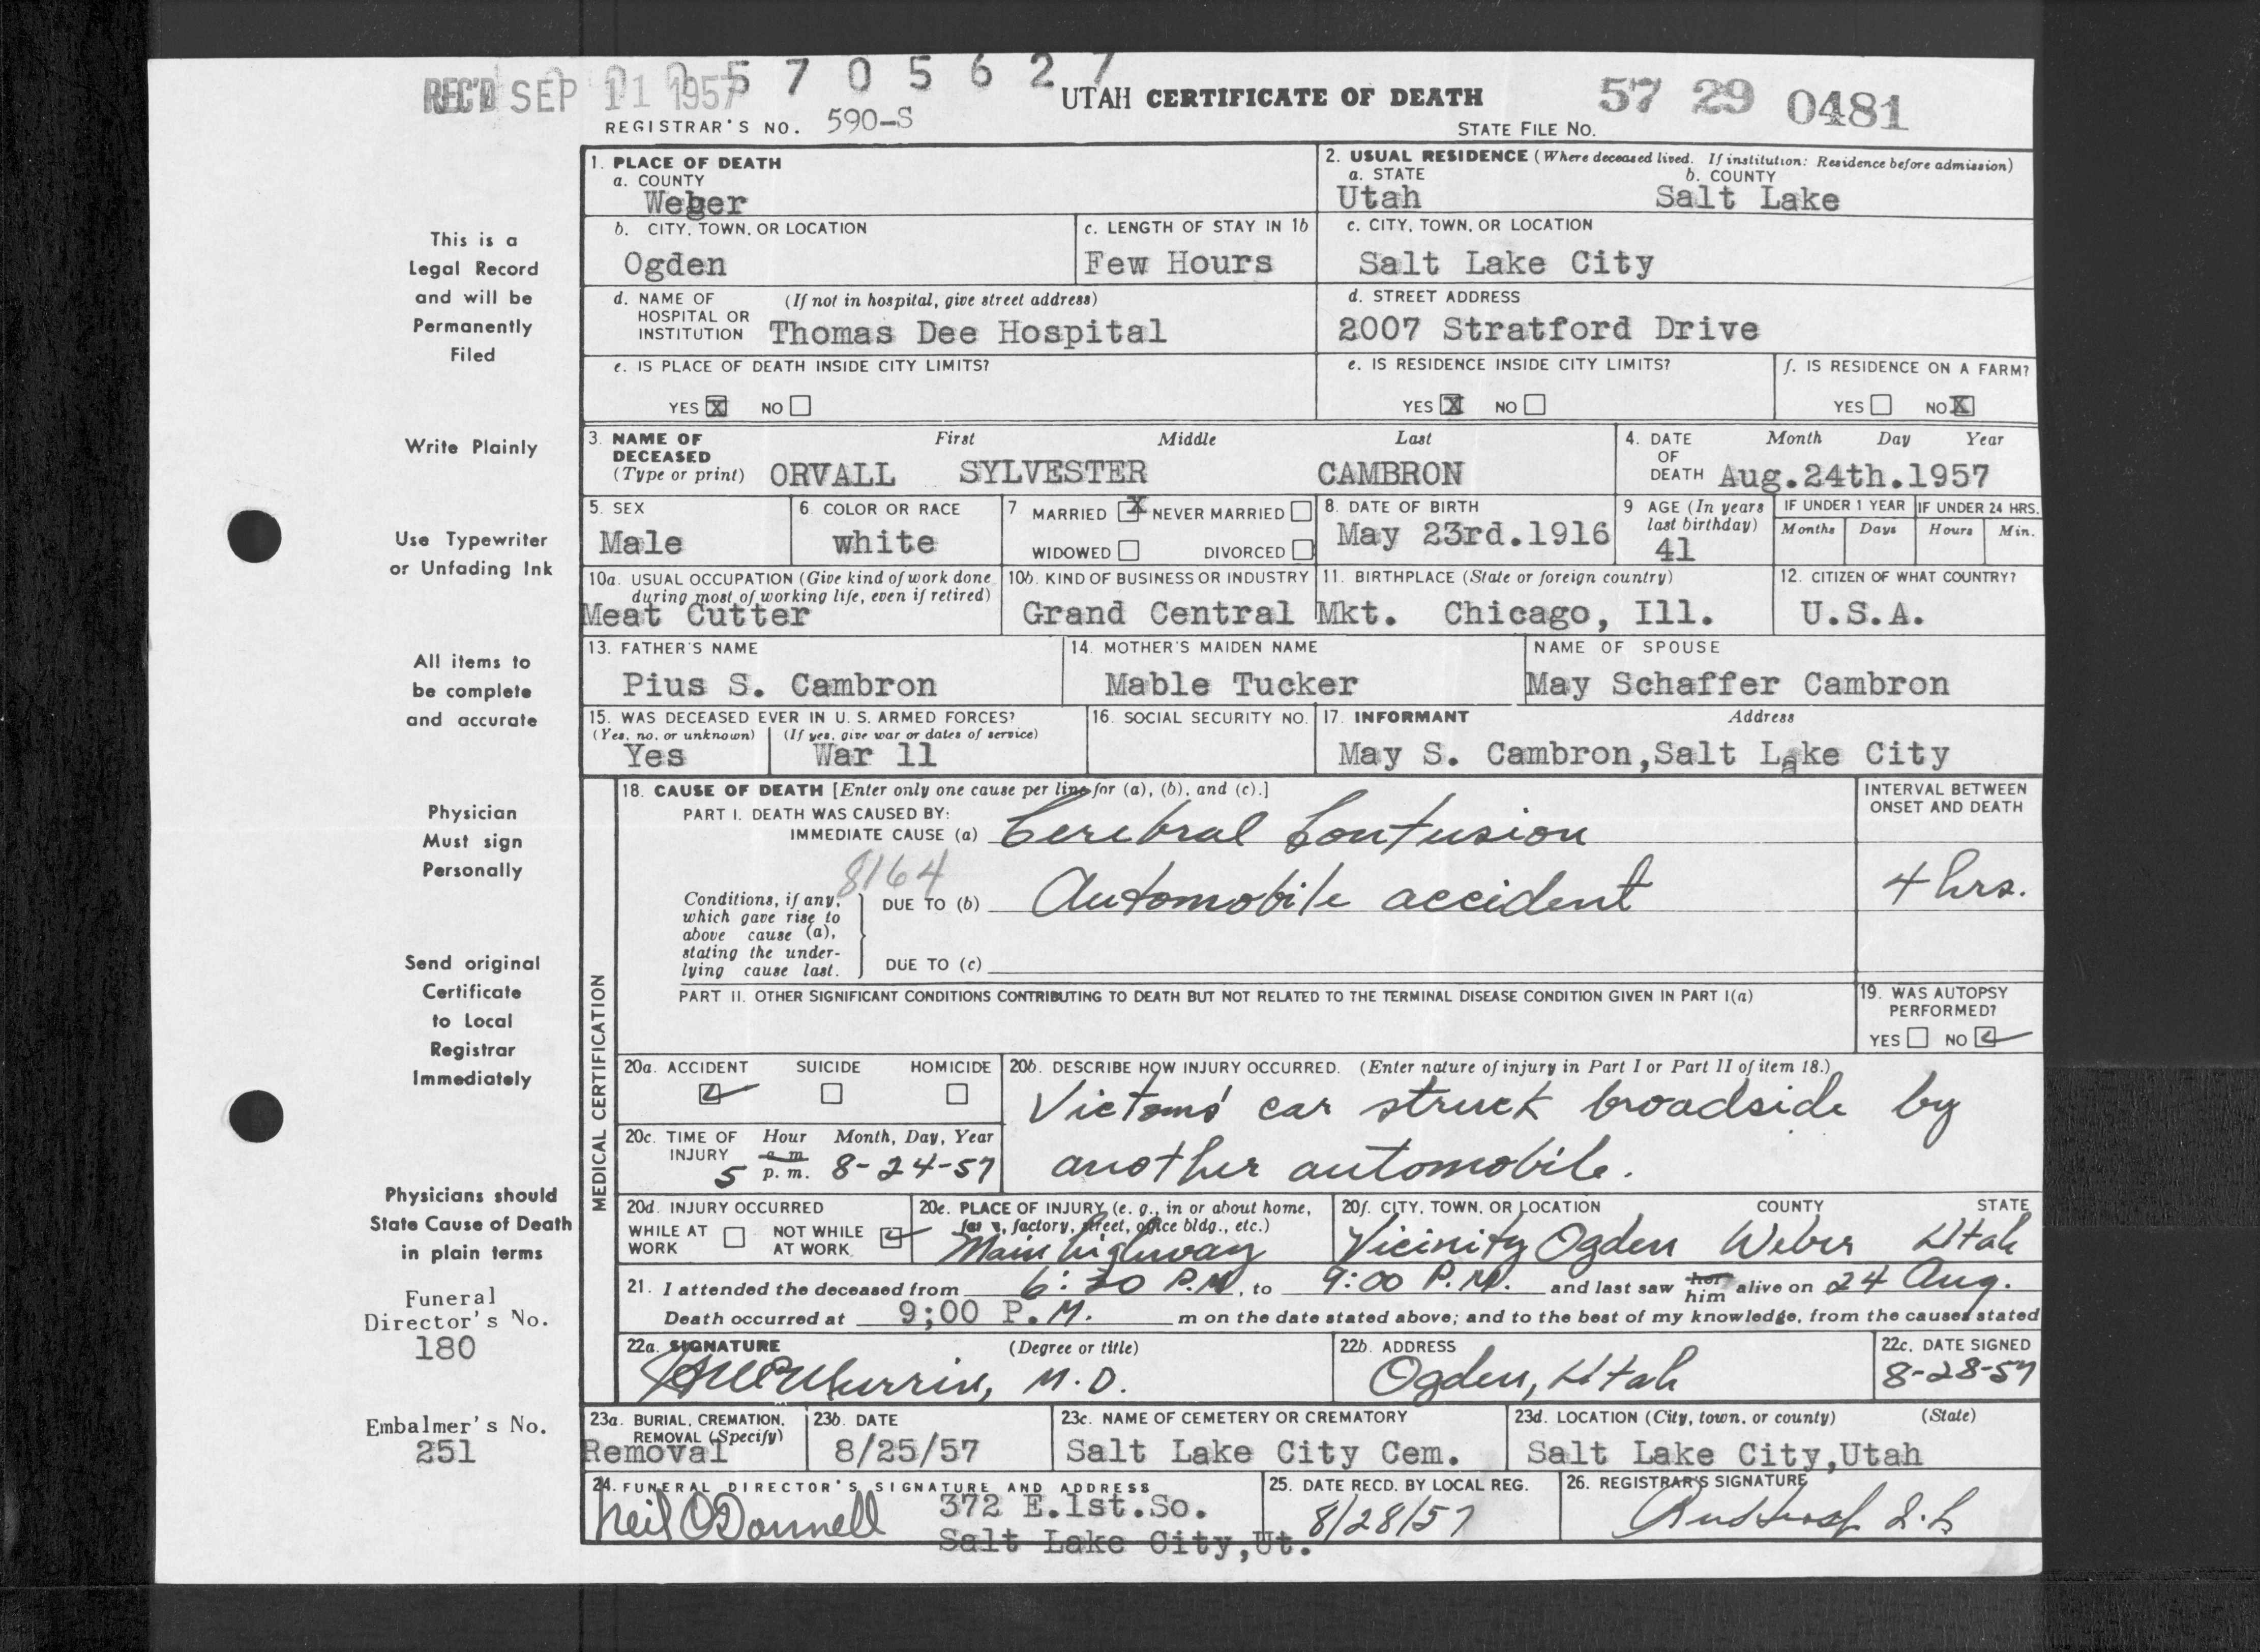 REC'D SEP 11 1957
5 7 0 5 6 2 7
UTAH CERTIFICATE OF DEATH
57 29 0481
REGISTRAR'S NO. 590-S
STATE FILE NO.
1. PLACE OF DEATH
a. COUNTY
Weber
2. USUAL RESIDENCE (Where deceased lived. If institution: Residence before admission)
a. STATE b. COUNTY
Utah Salt Lake
b. CITY, TOWN, OR LOCATION
Ogden
c. LENGTH OF STAY IN 1b
Few Hours
c. CITY, TOWN, OR LOCATION
Salt Lake City
d. NAME OF HOSPITAL OR INSTITUTION (If not in hospital, give street address)
Thomas Dee Hospital
d. STREET ADDRESS
2007 Stratford Drive
e. IS PLACE OF DEATH INSIDE CITY LIMITS?
YES X NO
e. IS RESIDENCE INSIDE CITY LIMITS?
YES X NO
f. IS RESIDENCE ON A FARM?
YES NO X
3. NAME OF DECEASED (Type or print) First Middle Last
ORVALL SYLVESTER CAMBRON
4. DATE OF DEATH Month Day Year
Aug.24th.1957
5. SEX
Male
6. COLOR OR RACE
white
7 MARRIED X NEVER MARRIED
WIDOWED DIVORCED
8. DATE OF BIRTH
May 23rd.1916
9 AGE (In years last birthday)
41
IF UNDER 1 YEAR
Months Days
IF UNDER 24 HRS.
Hours Min.
10a. USUAL OCCUPATION (Give kind of work done during most of working life, even if retired)
Meat Cutter
10b. KIND OF BUSINESS OR INDUSTRY
Grand Central Mkt.
11. BIRTHPLACE (State or foreign country)
Chicago, Ill.
12. CITIZEN OF WHAT COUNTRY?
U.S.A.
13. FATHER'S NAME
Pius S. Cambron
14. MOTHER'S MAIDEN NAME
Mable Tucker
NAME OF SPOUSE
May Schaffer Cambron
15. WAS DECEASED EVER IN U. S. ARMED FORCES?
(Yes, no, or unknown) (If yes, give war or dates of service)
Yes War 11
16. SOCIAL SECURITY NO.
17. INFORMANT Address
May S. Cambron,Salt Lake City
MEDICAL CERTIFICATION
18. CAUSE OF DEATH [Enter only one cause per line for (a), (b), and (c).]
PART I. DEATH WAS CAUSED BY:
IMMEDIATE CAUSE (a) Cerebral Contusion
8164
Conditions, if any, which gave rise to above cause (a), stating the underlying cause last.
DUE TO (b) Automobile accident
DUE TO (c)
INTERVAL BETWEEN ONSET AND DEATH
4 hrs.
PART II. OTHER SIGNIFICANT CONDITIONS CONTRIBUTING TO DEATH BUT NOT RELATED TO THE TERMINAL DISEASE CONDITION GIVEN IN PART I(a)
19. WAS AUTOPSY PERFORMED?
YES NO
20a. ACCIDENT SUICIDE HOMICIDE
20b. DESCRIBE HOW INJURY OCCURRED. (Enter nature of injury in Part I or Part II of item 18.)
Victoms' car struck broadside by
another automobile.
20c. TIME OF INJURY Hour Month, Day, Year
a. m.
5 p. m. 8-24-57
20d. INJURY OCCURRED
WHILE AT WORK NOT WHILE AT WORK
20e. PLACE OF INJURY (e. g., in or about home, farm, factory, street, office bldg., etc.)
Main highway
20f. CITY, TOWN, OR LOCATION COUNTY STATE
Vicinity Ogden Weber Utah
21. I attended the deceased from 6:30 P.M., to 9:00 P.M. and last saw her him alive on 24 Aug.
Death occurred at 9;00 P.M. m on the date stated above; and to the best of my knowledge, from the causes stated
22a. SIGNATURE (Degree or title)
M.D.
22b. ADDRESS
Ogden, Utah
22c. DATE SIGNED
8-28-57
23a. BURIAL, CREMATION, REMOVAL (Specify)
Removal
23b. DATE
8/25/57
23c. NAME OF CEMETERY OR CREMATORY
Salt Lake City Cem.
23d. LOCATION (City, town, or county) (State)
Salt Lake City,Utah
24. FUNERAL DIRECTOR'S SIGNATURE AND ADDRESS
Neil O'Donnell 372 E.1st.So.
Salt Lake City,Ut.
25. DATE RECD. BY LOCAL REG.
8/28/57
26. REGISTRAR'S SIGNATURE
This is a
Legal Record
and will be
Permanently
Filed
Write Plainly
Use Typewriter
or Unfading Ink
All items to
be complete
and accurate
Physician
Must sign
Personally
Send original
Certificate
to Local
Registrar
Immediately
Physicians should
State Cause of Death
in plain terms
Funeral
Director's No.
180
Embalmer's No.
251